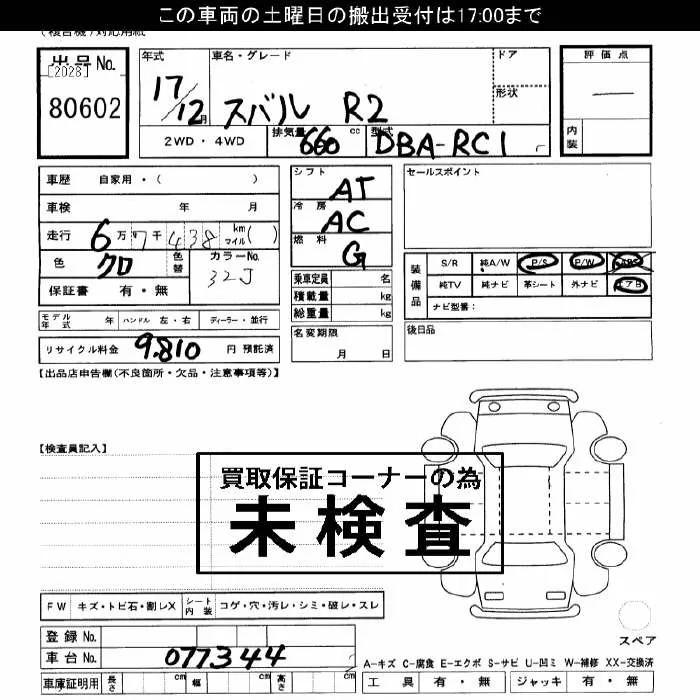 この車両の土曜日の搬出受付は17:00まで
(複合機)対応用紙
出品No.
[2028]
80602
年式
17/12月
車名・グレード
スバル R2
ドア
形状
2WD・4WD
排気量 660 cc
型式 DBA-RC1
評価点
—
内装
車歴 自家用・( )
車検 年 月
走行 6万7千438 km マイル( )
色 クロ
色替
カラーNo. 32J
保証書 有・無
シフト AT
冷房 AC
燃料 G
乗車定員 名
積載量 kg
総重量 kg
セールスポイント
装備品
S/R 純A/W P/S P/W ABS
純TV 純ナビ 革シート 外ナビ エアB
ナビ型番:
モデル年式 年 ハンドル 左・右 ディーラー・並行
リサイクル料金 9,810 円 預託済
名変期限 月 日
後日品
【出品店申告欄(不良箇所・欠品・注意事項等)】
【検査員記入】
買取保証コーナーの為
未検査
FW キズ・トビ石・割レX シート内装 コゲ・穴・汚レ・シミ・破レ・スレ
登録No.
車台No. 077344
車庫証明用 長さ cm 幅 cm 高さ cm
スペア
A-キズ C-腐食 E-エクボ S-サビ U-凹ミ W-補修 XX-交換済
工具 有・無 ジャッキ 有・無